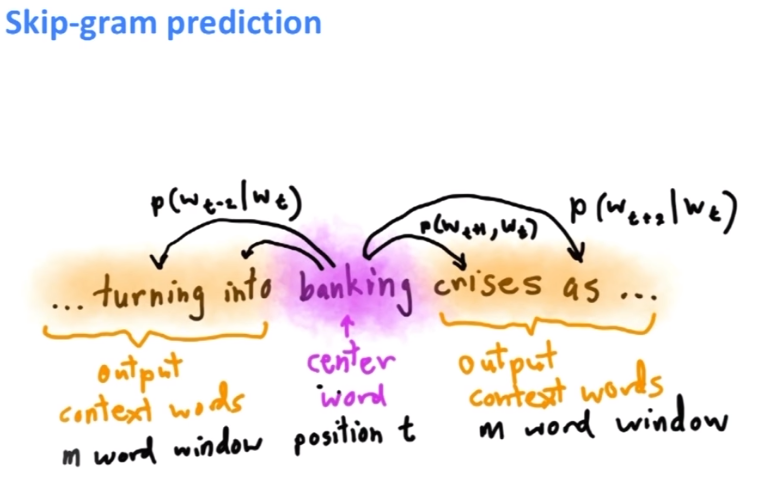 Skip-gram prediction
p(w t-2 | w t)
p(w t+1, w t)
p(w t+2 | w t)
... turning into banking crises as ...
output
context words
m word window
center
word
position t
output
context words
m word window